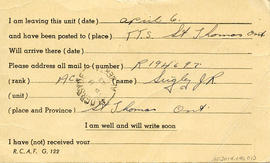 I am leaving this unit (date) April 6.
and have been posted to (place) T.T.S. St Thomas Ont
Will arrive there (date)
Please address all mail to (number) R194697
(rank) AC (name) Sugley J.R
(unit)
(place and Province) St Thomas Ont.
I am well and will write soon
I have (not) received your
R.C.A.F. G. 122